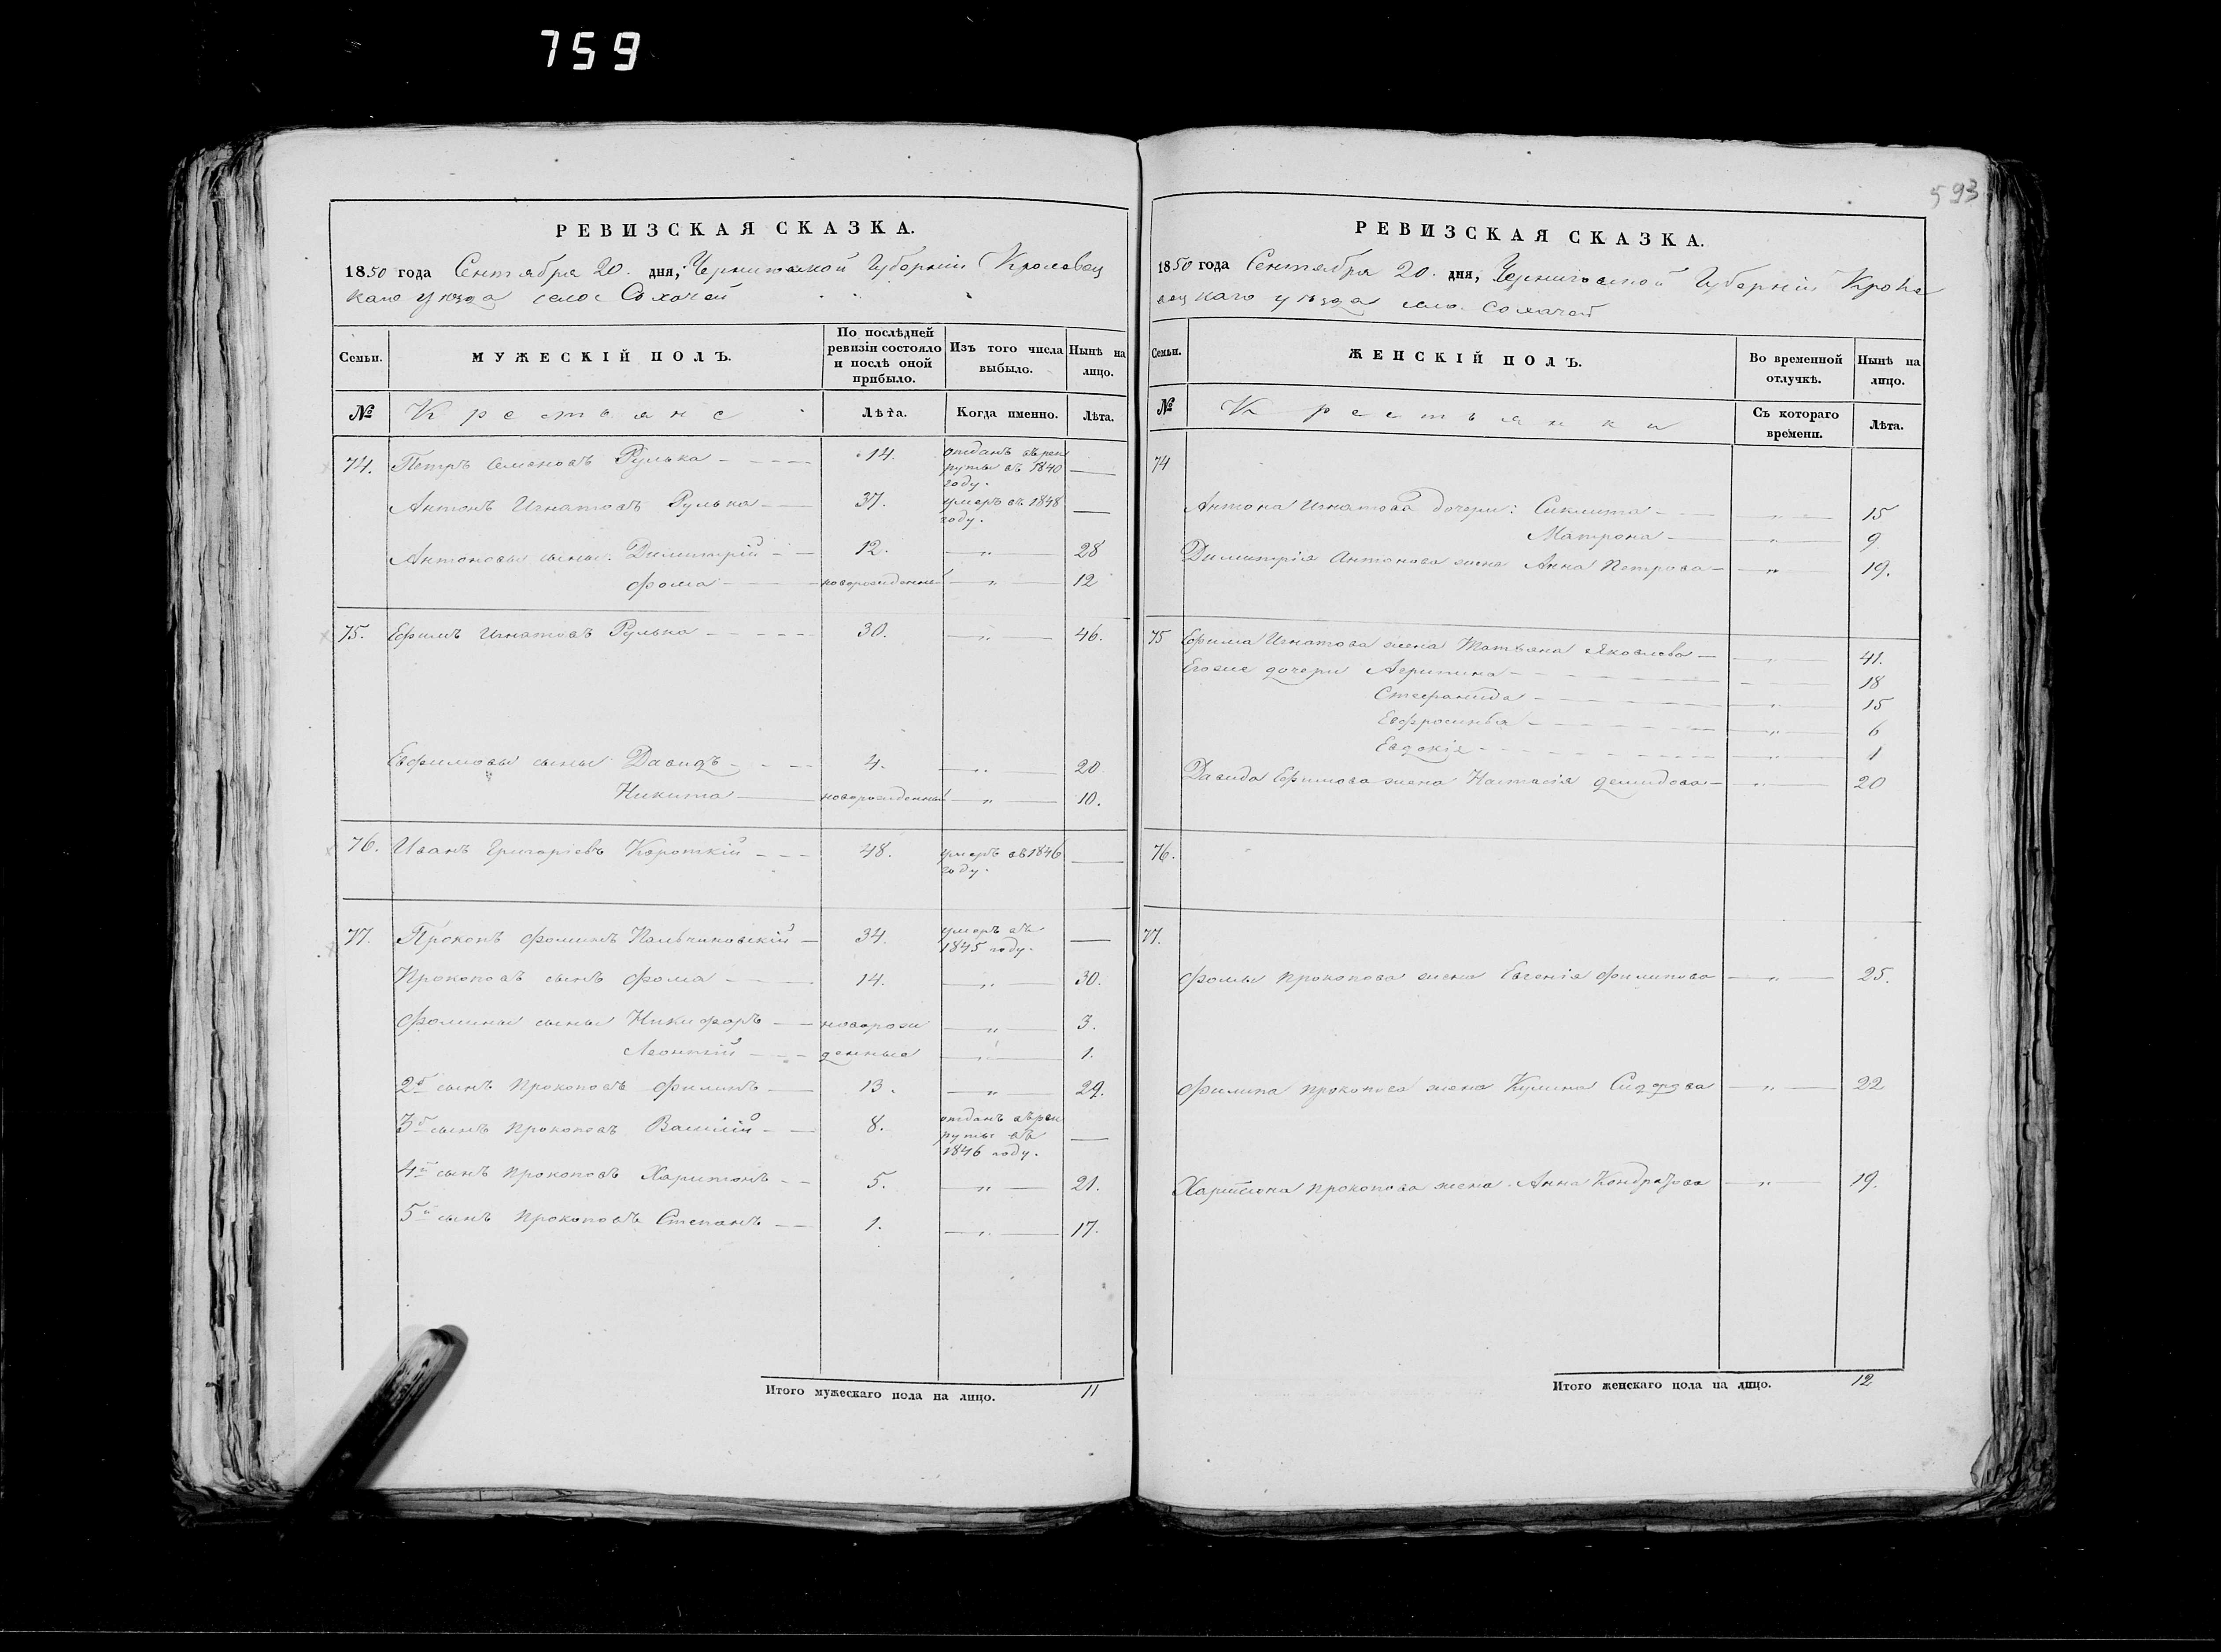 759
593
РЕВИЗСКАЯ СКАЗКА.
1850 года Сентября 20. дня, Черниговской Губерніи Кролевец
каго уѣзда село Сохачей
Семьи.
МУЖЕСКІЙ ПОЛЪ.
По послѣдней
ревизіи состояло
и послѣ оной
прибыло.
Изъ того числа
выбыло.
Нынѣ на
лицо.
№
Крестьяне
Лѣта.
Когда именно.
Лѣта.
74. Петръ Семеновъ Рулька 14. отданъ въ рек
руты въ 1840
году.
Антонъ Игнатовъ Рулька 37. умеръ въ 1848
году.
Антоновы сыны: Димитрій 12. " 28
Фома новорожденный " 12
75. Ефимъ Игнатовъ Рулька 30. " 46.
Евфимовы сыны Давидъ 4. " 20
Никита новорожденный " 10.
76. Иванъ Григоріевъ Короткій 48. умеръ въ 1846
году.
77. Прокопъ Фоминъ Пальчиковскій 34. умеръ въ
1845 году.
Прокоповъ сынъ Фома 14. " 30.
Фомины сыны Никифоръ новорож " 3.
Леонтій денные " 1.
2й сынъ Прокоповъ Филипъ 13. " 29.
3й сынъ Прокоповъ Василій 8. отданъ въ рек
руты въ
1846 году.
4й сынъ Прокоповъ Харитонъ 5. " 21.
5й сынъ Прокоповъ Степанъ 1. " 17.
Итого мужескаго пола на лицо. 11
РЕВИЗСКАЯ СКАЗКА.
1850 года Сентября 20. дня, Черниговской Губерніи Кроле
вецкаго уѣзда село Сохачей
Семьи.
ЖЕНСКІЙ ПОЛЪ.
Во временной
отлучкѣ.
Нынѣ на
лицо.
№
Крестьянки
Съ котораго
времени.
Лѣта.
74
Антона Игнатова дочери: Сиклита " 15
Матрона " 9
Димитрія Антонова жена Анна Петрова " 19.
75 Ефима Игнатова жена Татьяна Яковлева " 41.
Егоже дочери Агрипина 18
Стефанида " 15
Евфросинья " 6
Евдокія " 1
Давида Ефимова жена Настасія Демидова " 20
76.
77.
Фомы Прокопова жена Евгенія Филипова " 25.
Филипа Прокопова жена Кулина Сидорова " 22
Харитона Прокопова жена Анна Кондратова " 19.
Итого женскаго пола на лицо. 12